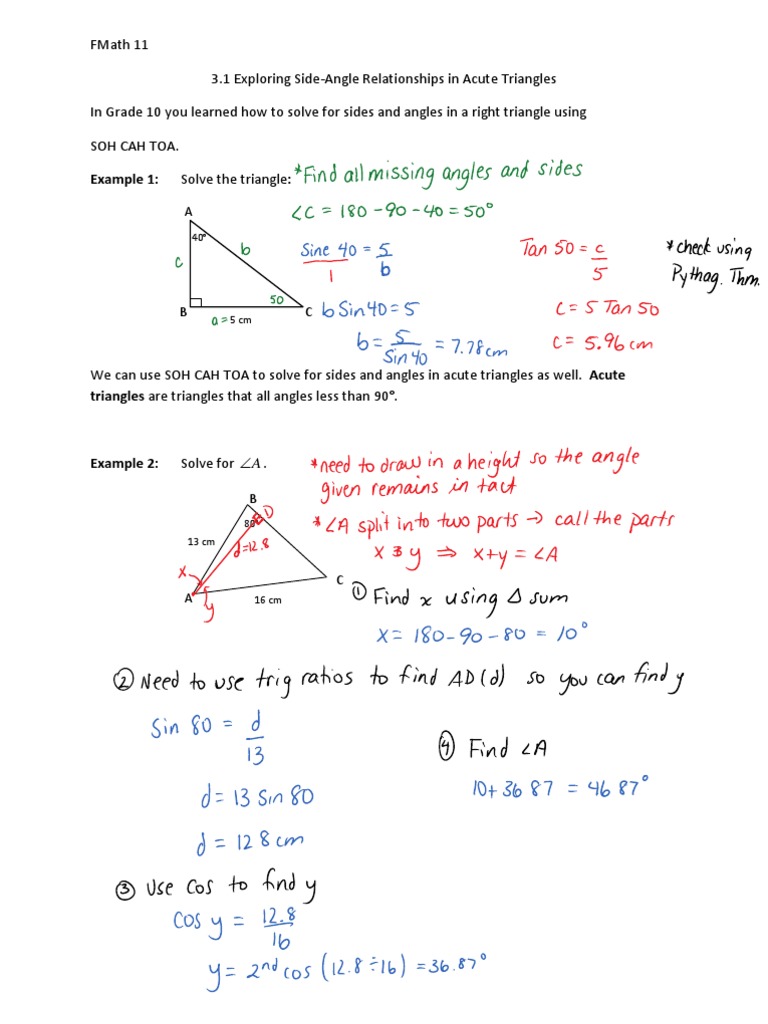 FMath 11
3.1 Exploring Side-Angle Relationships in Acute Triangles
In Grade 10 you learned how to solve for sides and angles in a right triangle using
SOH CAH TOA.
Example 1: Solve the triangle: *Find all missing angles and sides
∠C = 180 - 90 - 40 = 50°
A
40°
c
b
50
B
C
a = 5 cm
Sine 40 = 5/b
1
b Sin 40 = 5
b = 5/Sin 40 = 7.78 cm
Tan 50 = c/5
c = 5 Tan 50
c = 5.96 cm
*check using
Pythag. Thm.
We can use SOH CAH TOA to solve for sides and angles in acute triangles as well. Acute
triangles are triangles that all angles less than 90°.
Example 2: Solve for ∠A.
*need to draw in a height so the angle
given remains in tact
*∠A split into two parts → call the parts
x & y ⇒ x+y = ∠A
B
80°
D
13 cm
d=12.8
x
A
y
16 cm
C
① Find x using Δ sum
x = 180 - 90 - 80 = 10°
② Need to use trig ratios to find AD(d) so you can find y
Sin 80 = d/13
d = 13 Sin 80
d = 12 8 cm
④ Find ∠A
10+36 87 = 46 87°
③ Use Cos to find y
Cos y = 12.8/16
y = 2nd cos (12.8 ÷ 16) = 36.87°